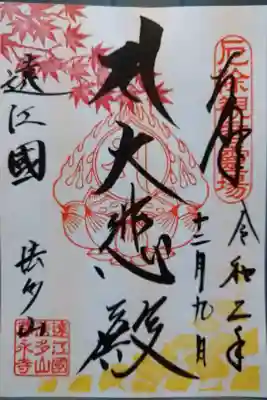 厄除観音霊場
奉拝
令和二年
十二月九日
大悲殿
遠江國
法多山
遠江國
法多山
尊永寺